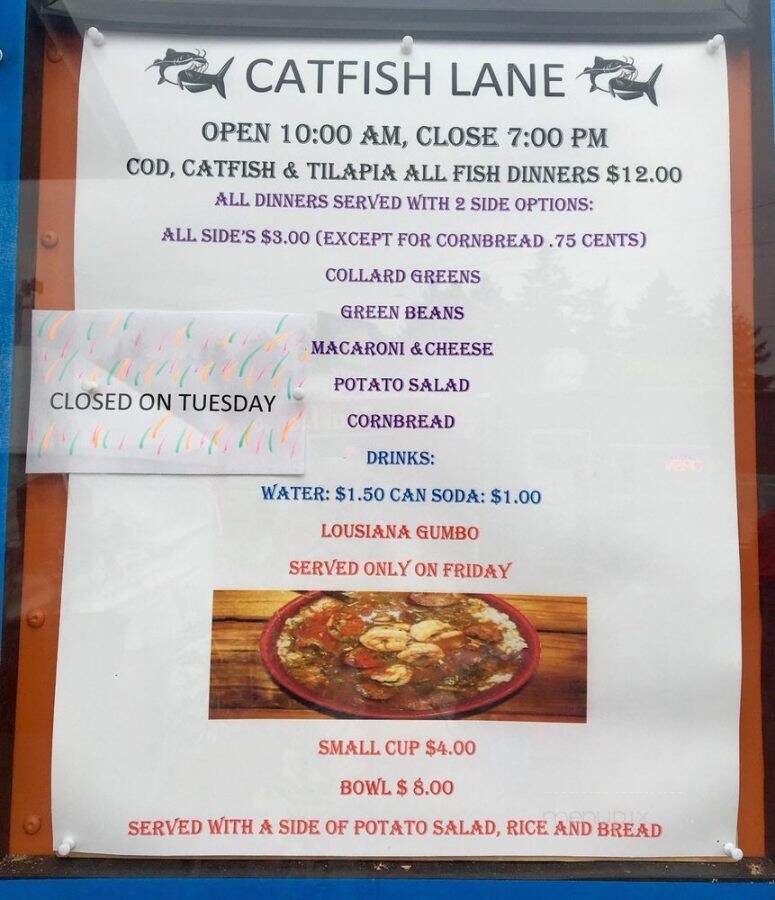 CATFISH LANE
OPEN 10:00 AM, CLOSE 7:00 PM
COD, CATFISH & TILAPIA ALL FISH DINNERS $12.00
ALL DINNERS SERVED WITH 2 SIDE OPTIONS:
ALL SIDE'S $3.00 (EXCEPT FOR CORNBREAD .75 CENTS)
COLLARD GREENS
GREEN BEANS
MACARONI & CHEESE
POTATO SALAD
CLOSED ON TUESDAY
CORNBREAD
DRINKS:
WATER: $1.50 CAN SODA: $1.00
LOUSIANA GUMBO
SERVED ONLY ON FRIDAY
SMALL CUP $4.00
BOWL $ 8.00
menupix
SERVED WITH A SIDE OF POTATO SALAD, RICE AND BREAD